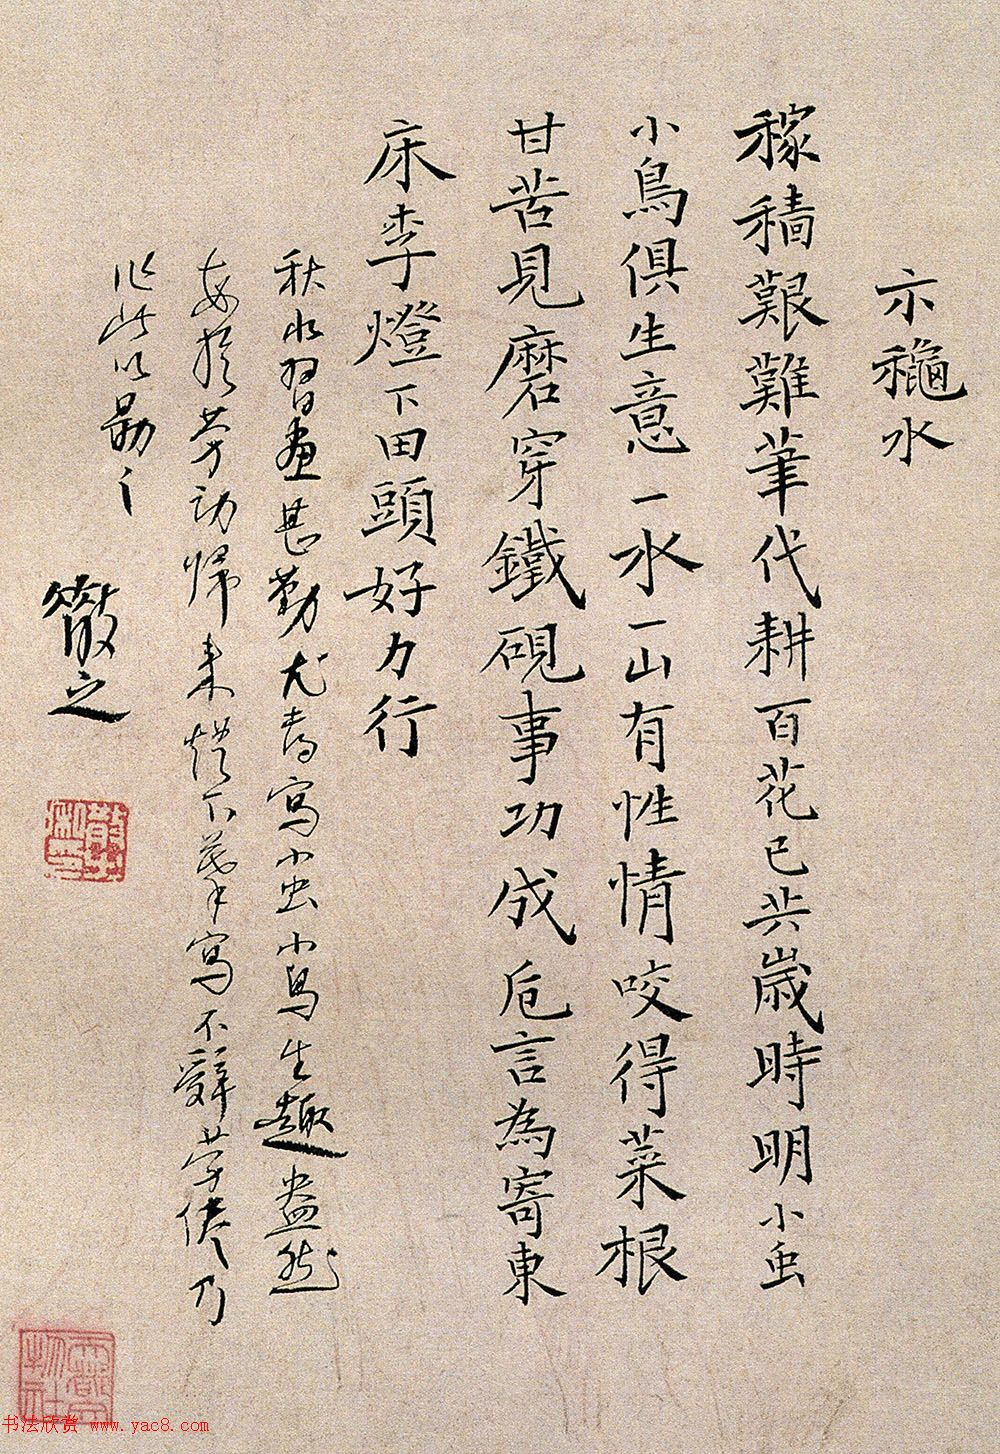 示龝水
稼穡艱難筆代耕百花已共歲時明小虫
小鳥俱生意一水一山有性情咬得菜根
甘苦見磨穿鐵硯事功成卮言為寄東
床李燈下田頭好力行
秋水習畫甚勤尤喜寫小虫小鳥生趣盎然
每於勞動歸來燈下摹寫不辭勞倦乃
作此以勗之
散之
书法欣赏 www.yac8.com